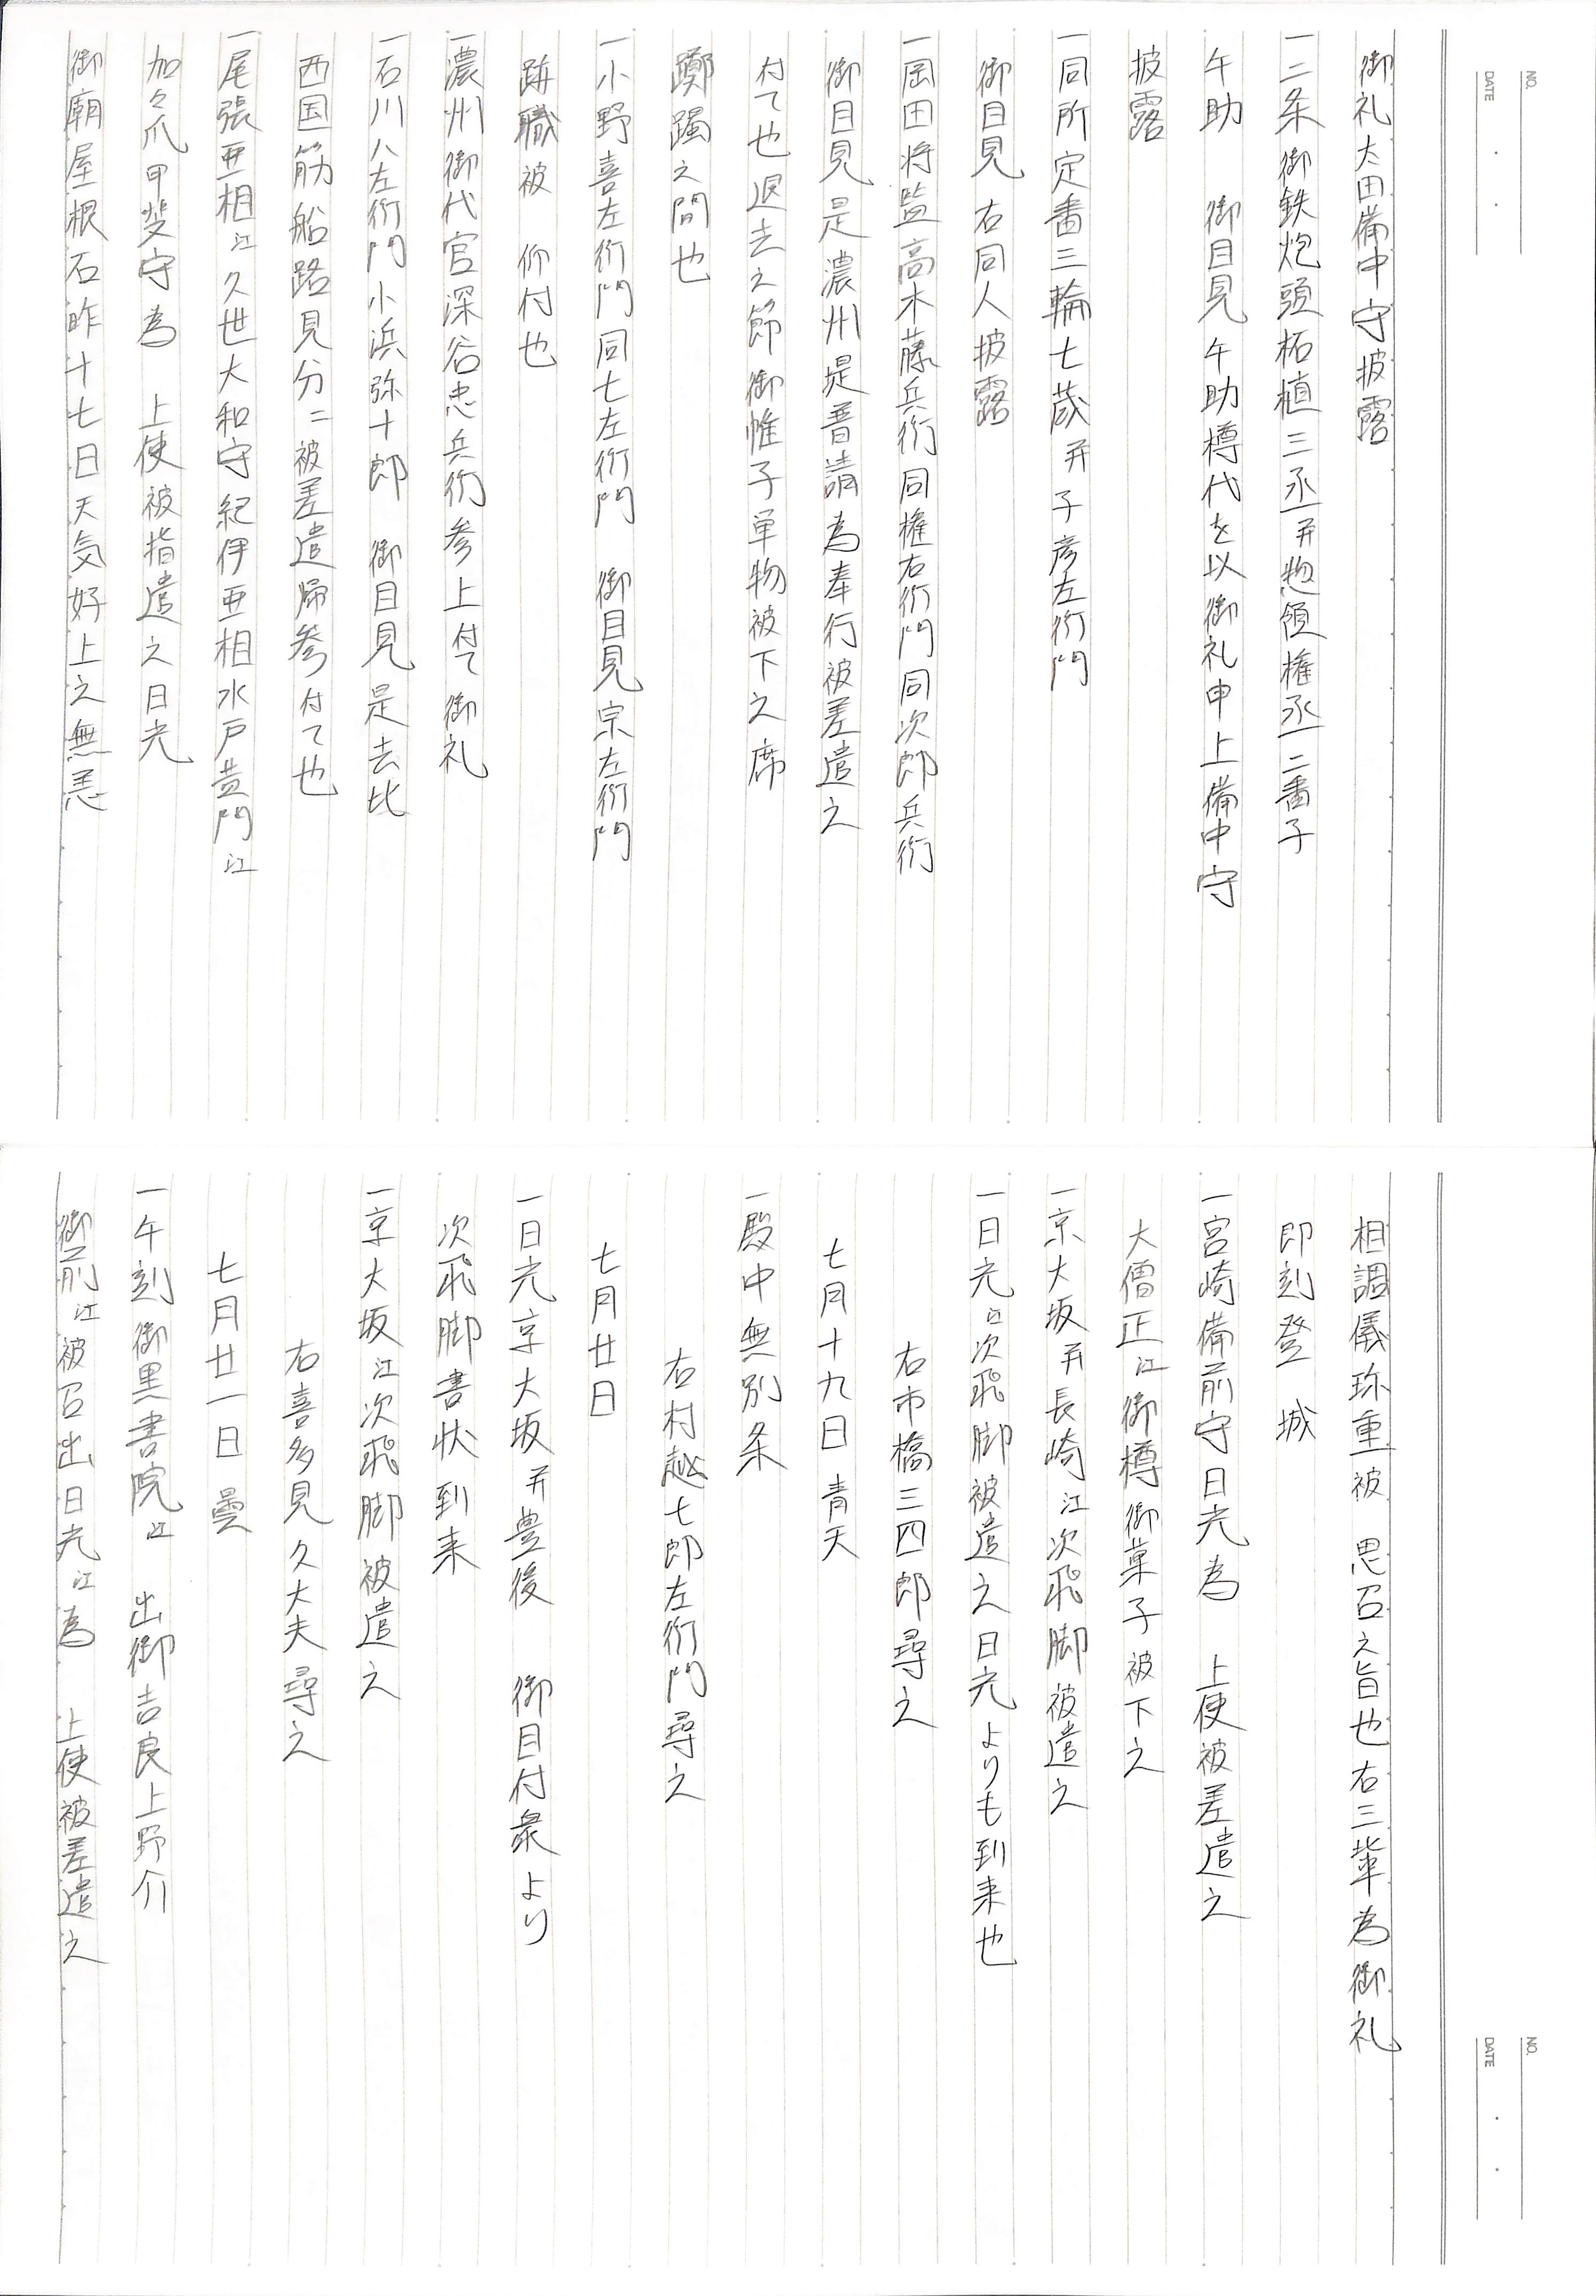 NO.
DATE ・ ・
御礼太田備中守披露
一二条御鉄炮頭柘植三丞并惣領権丞二番子
午助　御目見午助樽代を以御礼申上備中守
披露
一同所定番三輪七蔵并子彦左衛門
御目見右同人披露
一岡田将監高木藤兵衛同権右衛門同次郎兵衛
御目見是濃州堤普請為奉行被差遣之
付て也退去之節御帷子単物被下之席
躑躅之間也
一小野喜左衛門同七左衛門　御目見宗左衛門
跡職被　仰付也
一濃州御代官深谷忠兵衛参上付て御礼
一石川八左衛門小浜弥十郎　御目見是去比
西国筋船路見分ニ被差遣帰参付て也
一尾張亜相江久世大和守紀伊亜相水戸黄門江
加々爪甲斐守為　上使被指遣之日光
御廟屋根石昨十七日天気好上之無恙
NO.
DATE ・ ・
相調儀珍重被　思召之旨也右三輩為御礼
即刻登　城
一宮崎備前守日光為　上使被差遣之
大僧正江御樽御菓子被下之
一京大坂并長崎江次飛脚被遣之
一日光江次飛脚被遣之日光よりも到来也
右市橋三四郎尋之
七月十九日　青天
一殿中無別条
右村越七郎左衛門尋之
七月廿日
一日光京大坂并豊後　御目付衆より
次飛脚書状到来
一京大坂江次飛脚被遣之
右喜多見久大夫尋之
七月廿一日　曇
一午刻御黒書院江　出御吉良上野介
御前江被召出日光江為　上使被差遣之